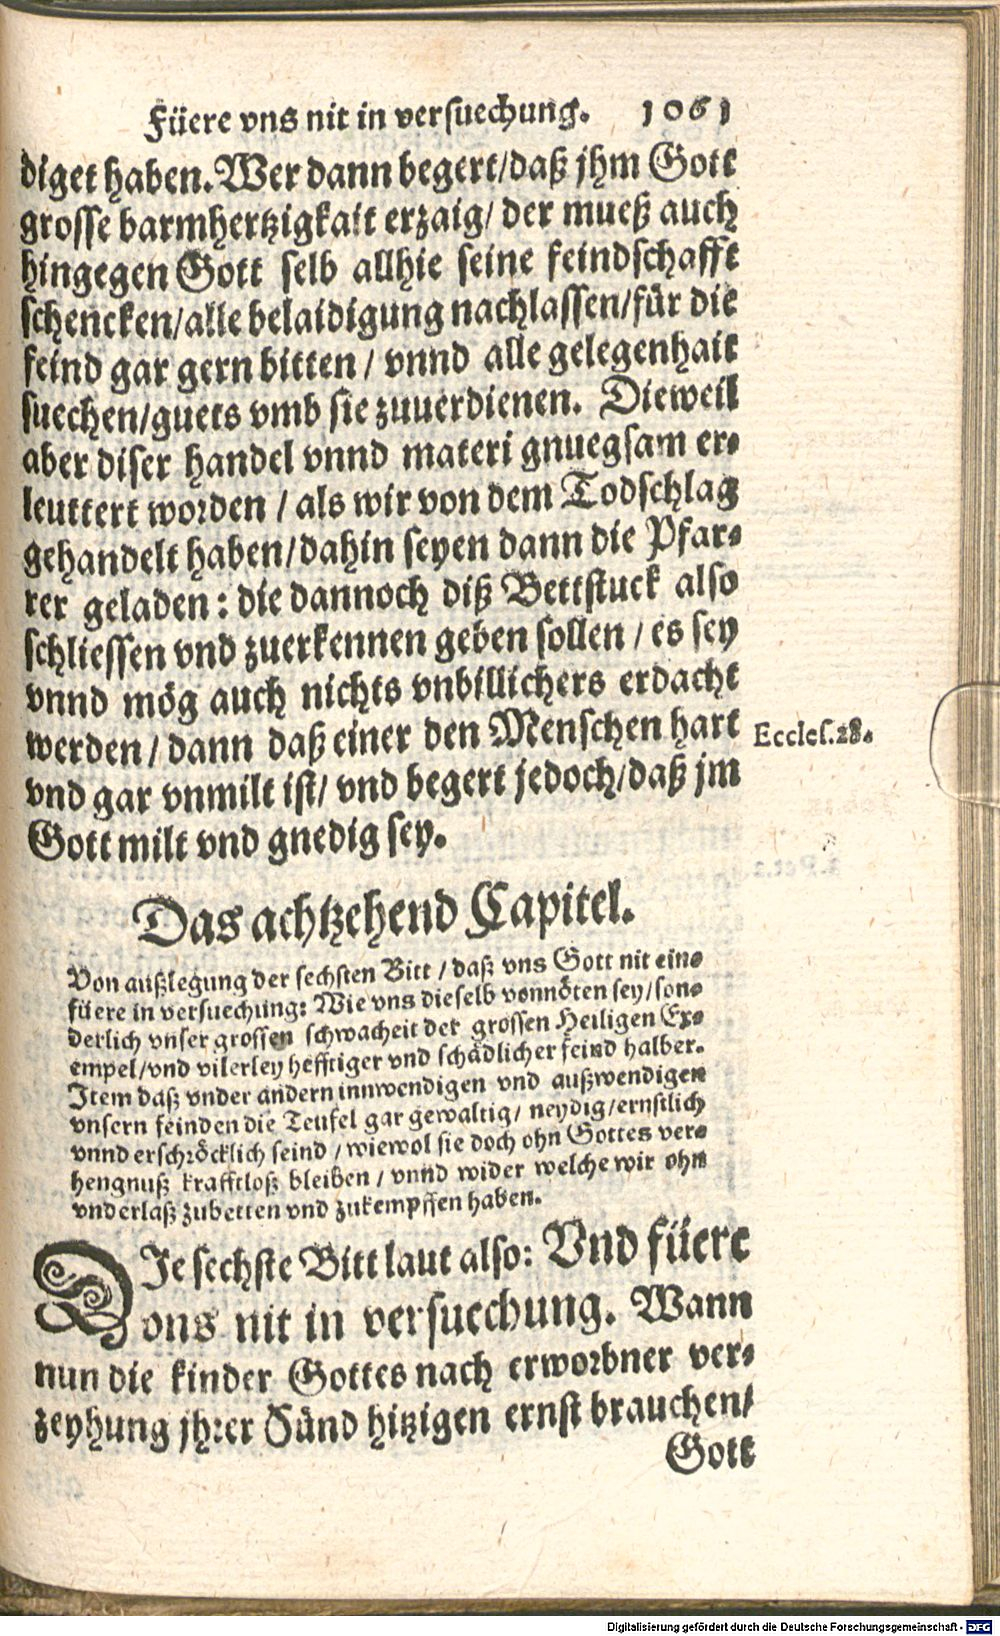 Füere vns nit in versuechung. 1061
diget haben. Wer dann begert/daß jhm Gott
grosse barmhertzigkait erzaig/ der mueß auch
hingegen Gott selb allhie seine feindschafft
schencken/alle belaidigung nachlassen/für die
feind gar gern bitten / vnnd alle gelegenhait
suechen/guets vmb sie zuuerdienen. Dieweil
aber diser handel vnnd materi gnuegsam er-
leuttert worden / als wir von dem Todschlag
gehandelt haben/dahin seyen dann die Pfar-
rer geladen: die dannoch diß Bettstuck also
schliessen vnd zuerkennen geben sollen / es sey
vnnd mög auch nichts vnbillichers erdacht
werden / dann daß einer den Menschen hart
Eccles.28.
vnd gar vnmilt ist/ vnd begert jedoch/daß jm
Gott milt vnd gnedig sey.
Das achtzehend Capitel.
Von außlegung der sechsten Bitt / daß vns Gott nit ein-
füere in versuechung: Wie vns dieselb vonnöten sey/son-
derlich vnser grossen schwacheit der grossen Heiligen Ex-
empel/vnd vilerley hefftiger vnd schädlicher feind halber.
Item daß vnder andern innwendigen vnd außwendigen
vnsern feinden die Teufel gar gewaltig/ neydig/ernstlich
vnnd erschröcklich seind / wiewol sie doch ohn Gottes ver-
hengnuß krafftloß bleiben / vnnd wider welche wir ohn
vnderlaß zubetten vnd zukempffen haben.
DIe sechste Bitt laut also: Vnd füere
vns nit in versuechung. Wann
nun die kinder Gottes nach erworbner ver-
zeyhung jhrer Sünd hitzigen ernst brauchen/
Gott
Digitalisierung gefördert durch die Deutsche Forschungsgemeinschaft - DFG